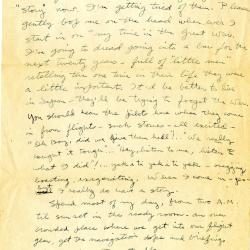 "story" now. I'm getting tired of them. Please
gently bop me on the head when ever I
start in on "my time in the Great War."
I'm going to dread going into a bar for the
next twenty years - full of little men
retelling the one time in their life they were
a little important. It'd be better to live
in – they'll be trying to forget the war.
You should hear the pilots here when they come
in from flight - such stories - all excited -
"Oh Boy, did we give them hell?!. We really
caught it tough". "Hey, listen to me, listen to
what I did!"... yaketa yaketa yak - bragging
boasting, exaggerating. When I come in - good
but I really do have a story.
Spend most of my day, from two A.M.
til sun set in the ready room - an over
crowded place where we get into our flight
gear, get the navigation dope and briefing.